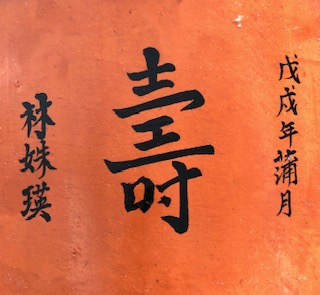 戊戌年蒲月
壽
林姝瑛